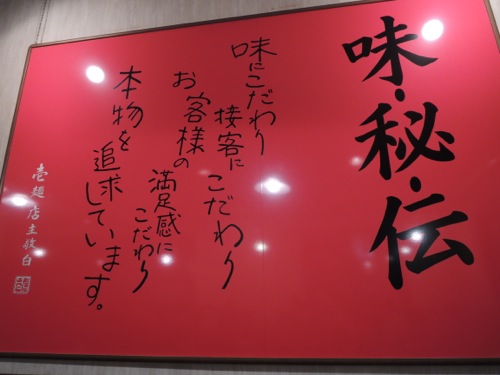 味・秘・伝
味にこだわり
接客にこだわり
お客様の
満足感にこだわり
本物を
追求しています。
壱麺店主敬白